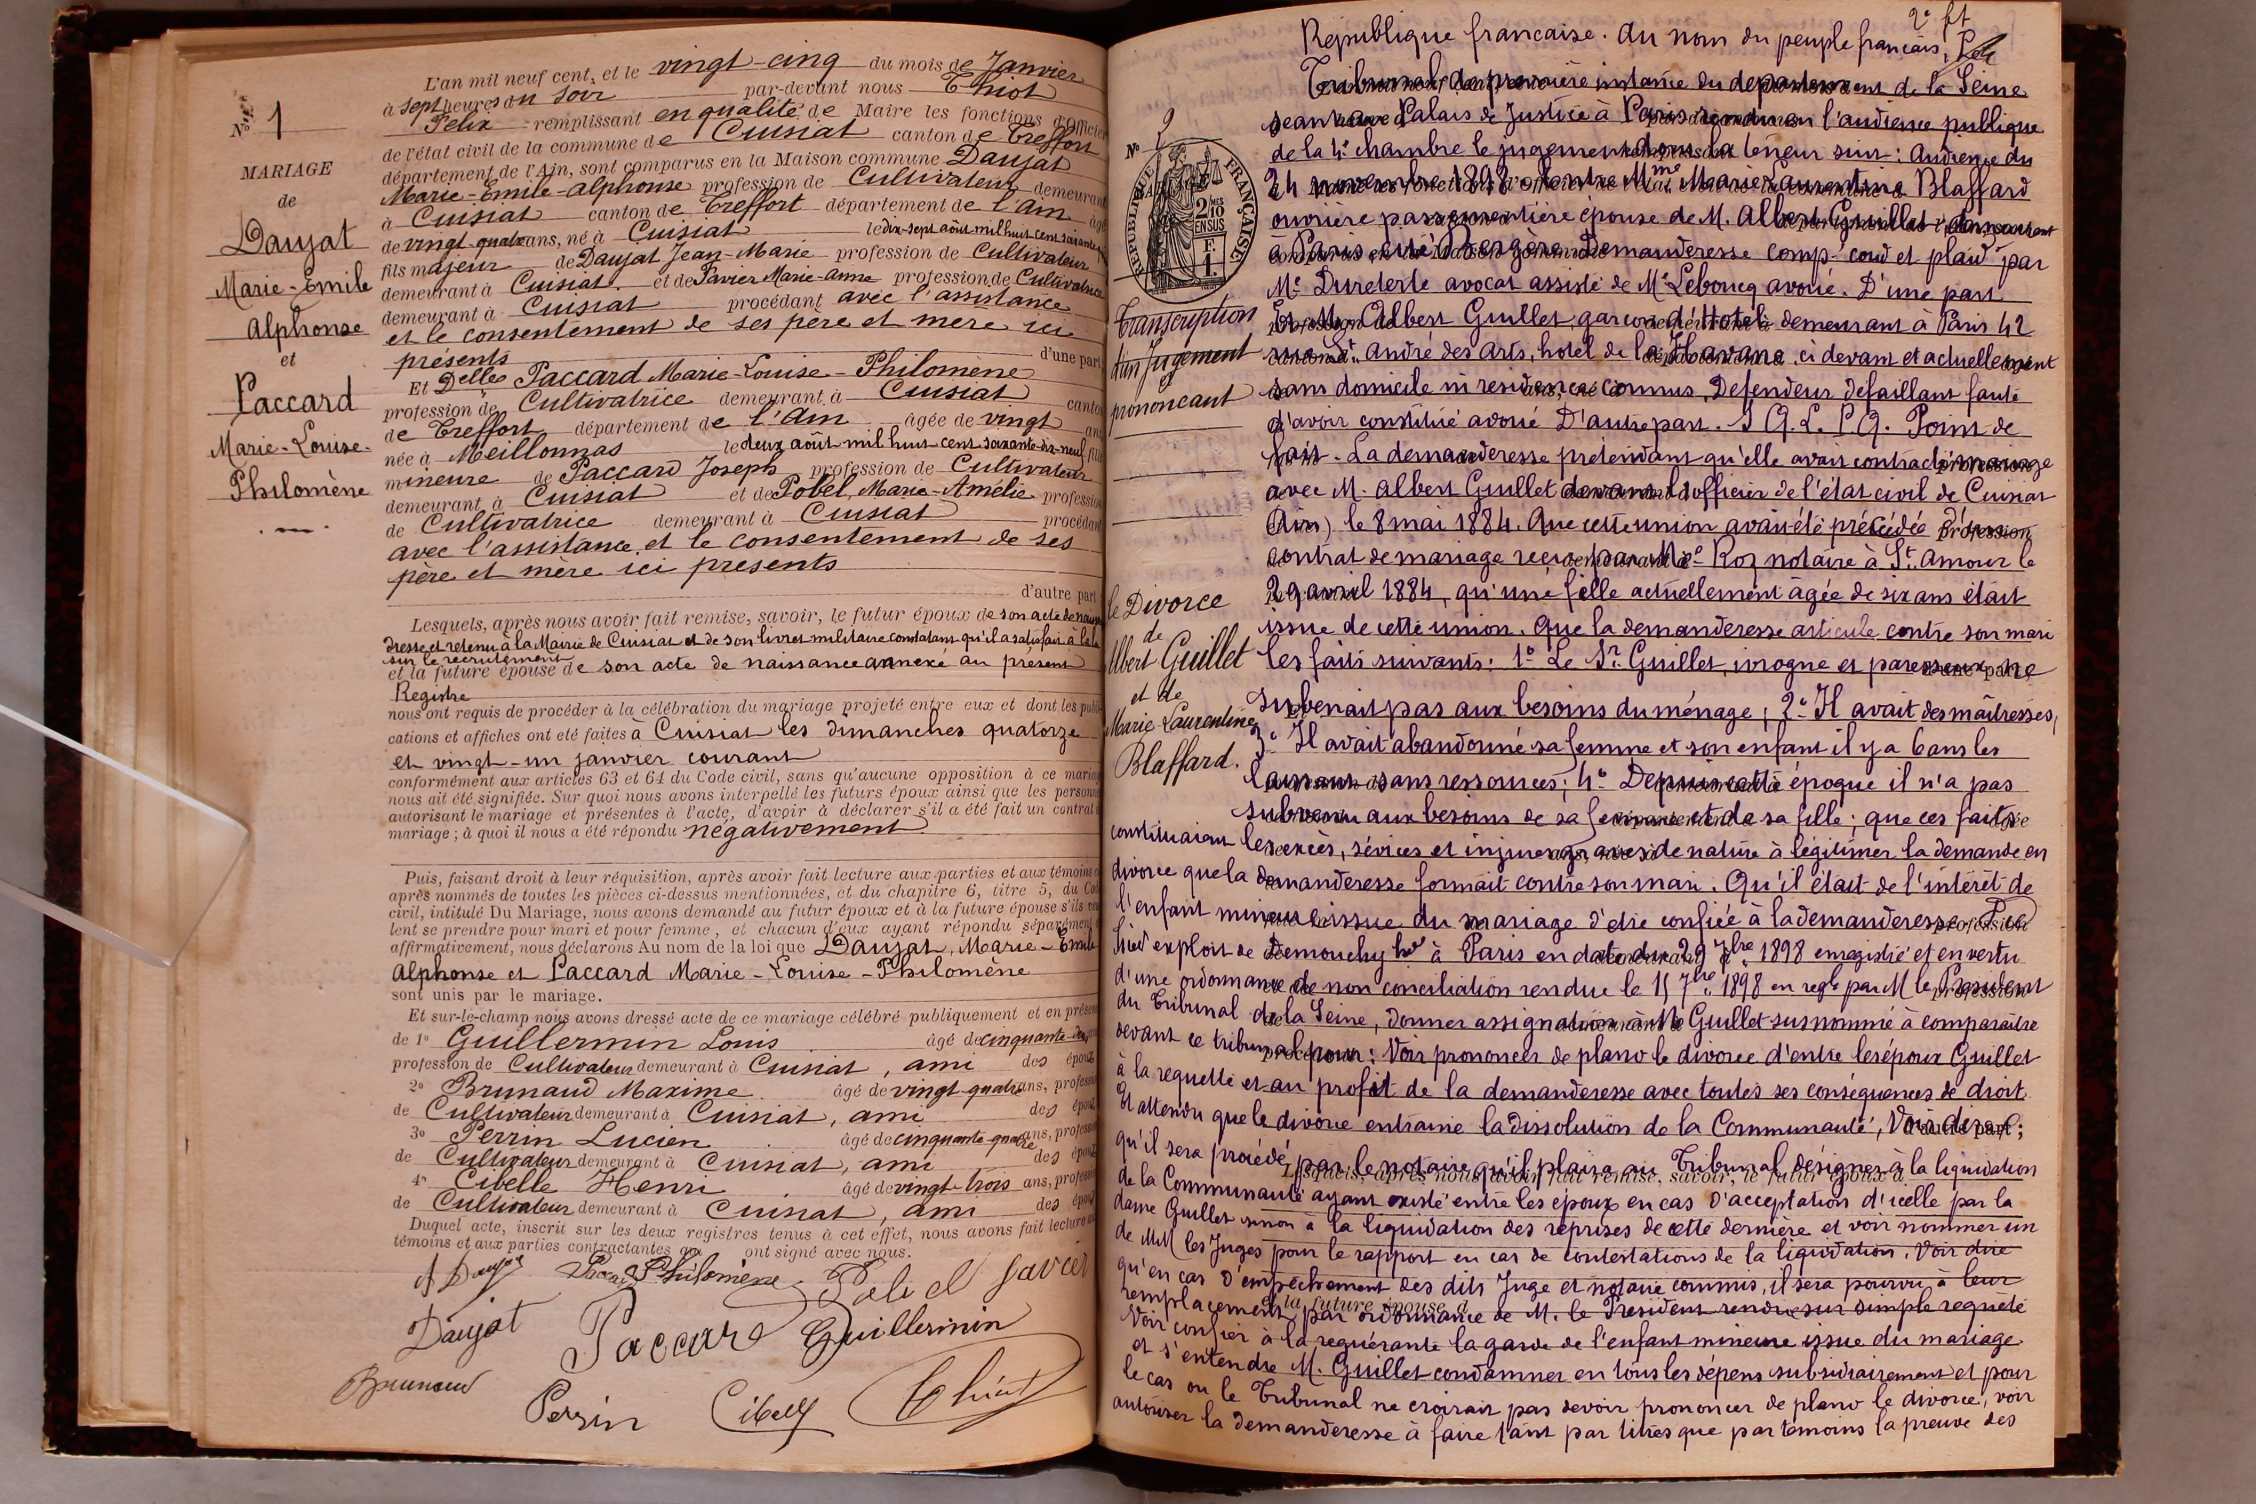 N° 1
MARIAGE
de
Daujat
Marie-Emile
Alphonse
et
Paccard
Marie-Louise-
Philomène
L'an mil neuf cent, et le vingt-cinq du mois de Janvier
à sept heures du soir par-devant nous Thiot
Félix remplissant en qualité de Maire les fonctions d'officier
de l'état civil de la commune de Cuisiat canton de Treffort
département de l'Ain, sont comparus en la Maison commune Daujat
Marie-Emile-Alphonse profession de Cultivateur demeurant
à Cuisiat canton de Treffort département de l'Ain âgé
de vingt-quatre ans, né à Cuisiat le dix-sept août mil huit cent soixante
fils majeur de Daujat Jean-Marie profession de Cultivateur
demeurant à Cuisiat et de Javier Marie-Anne profession de Cultivatrice
demeurant à Cuisiat procédant avec l'assistance
et le consentement de ses père et mère ici
présents d'une part
Et Delle Paccard Marie-Louise-Philomène
profession de Cultivatrice demeurant à Cuisiat canton
de Treffort département de l'Ain âgée de vingt ans
née à Meillonnas le deux août mil huit cent soixante-dix-neuf fille
mineure de Paccard Joseph profession de Cultivateur
demeurant à Cuisiat et de Pobel, Marie-Amélie profession
de Cultivatrice demeurant à Cuisiat procédant
avec l'assistance et le consentement de ses
père et mère ici présents
d'autre part
Lesquels, après nous avoir fait remise, savoir, le futur époux de son acte de
dressé et retenu à la Mairie de Cuisiat et de son livret militaire constatant qu'il a satisfait à la
sur le recrutement
et la future épouse de son acte de naissance annexé au présent
Registre
nous ont requis de procéder à la célébration du mariage projeté entre eux et dont les publi
cations et affiches ont été faites à Cuisiat les dimanches quatorze
et vingt-un janvier courant
conformément aux articles 63 et 64 du Code civil, sans qu'aucune opposition à ce mariage
nous ait été signifiée. Sur quoi nous avons interpellé les futurs époux ainsi que les personnes
autorisant le mariage et présentes à l'acte, d'avoir à déclarer s'il a été fait un contrat
mariage ; à quoi il nous a été répondu négativement
Puis, faisant droit à leur réquisition, après avoir fait lecture aux parties et aux témoins
après nommés de toutes les pièces ci-dessus mentionnées, et du chapitre 6, titre 5, du Code
civil, intitulé Du Mariage, nous avons demandé au futur époux et à la future épouse s'ils veu
lent se prendre pour mari et pour femme, et chacun d'eux ayant répondu séparément
affirmativement, nous déclarons Au nom de la loi que Daujat, Marie-Emile
Alphonse et Paccard Marie-Louise-Philomène
sont unis par le mariage.
Et sur-le-champ nous avons dressé acte de ce mariage célébré publiquement et en présence
de 1° Guillermin Louis âgé de cinquante-deux
profession de Cultivateur demeurant à Cuisiat, ami des époux
2° Brunaud Maxime âgé de vingt-quatre ans, profession
de Cultivateur demeurant à Cuisiat, ami des époux
3° Perrin Lucien âgé de cinquante-quatre ans, profession
de Cultivateur demeurant à Cuisiat, ami des époux
4° Cibelle Henri âgé de vingt-trois ans, profession
de Cultivateur demeurant à Cuisiat, ami des époux
Duquel acte, inscrit sur les deux registres tenus à cet effet, nous avons fait lecture aux
témoins et aux parties contractantes qui ont signé avec nous.
A Daujat Paccard Philomène Pobel Javier
Daujat Paccard Guillermin
Brunaud Perrin Cibelle Thiot
2e ft
N° 2
RÉPUBLIQUE FRANÇAISE
2/10 EN SUS
F. 1.
Transcription
d'un Jugement
prononçant
le Divorce
de
Albert Guillet
et de
Marie Laurentine
Blaffard.
République francaise. Au nom du peuple francais, Le
Tribunal de première instance du departement de la Seine
seant au Palais de Justice à Paris rendu en l'audience publique
de la 4e chambre le jugement dont la teneur suit: Audience du
24 novembre 1898. Entre Mme Marie Laurentine Blaffard
ouvrière passementière épouse de M. Albert Guillet demeurant
a Paris cité Bergère Demanderesse comp- coud et plaid- par
Me Dureterte avocat assisté de Me Leboucq avoué. D'une part
Et M. Albert Guillet, garçon d'Hotel demeurant à Paris 42
rue St André des Arts, hotel de la Havane ci devant et actuellement
sans domicile ni residence connus, Defendeur defaillant faute
d'avoir constitué avoué D'autre part. S Q. L. P Q. Point de
fait - La demanderesse prétendant qu'elle avait contracté mariage
avec M. Albert Guillet devant l'officier de l'état civil de Cuisiat
(Ain) le 8 mai 1884. Que cette union avait été précédée d'un
contrat de mariage reçu par Me Roz notaire à St. Amour le
29 avril 1884, qu'une fille actuellement âgée de six ans était
issue de cette union. Que la demanderesse articule contre son mari
les faits suivants: 1° Le Sr. Guillet, ivrogne et paresseux ne
subvenait pas aux besoins du ménage; 2° Il avait des maîtresses,
3° Il avait abandonné sa femme et son enfant il y a 6 ans les
laissant sans ressources; 4° Depuis cette époque il n'a pas
subvenu aux besoins de sa femme et de sa fille; que ces faits
constituaient les excès, sévices et injures graves de nature à légitimer la demande en
divorce que la demanderesse formait contre son mari. Qu'il était de l'intérêt de
l'enfant mineure issue du mariage d'être confiée à la demanderesse
exploit de Demouchy hr à Paris en date du 29 7bre 1898 enregistré et en vertu
d'une ordonnance de non conciliation rendue le 15 7bre 1898 en regle par M le President
du Tribunal de la Seine, donner assignation à M Guillet susnommé à comparaître
devant ce tribunal pour: Voir prononcer de plano le divorce d'entre les époux Guillet
à la requette et au profit de la demanderesse avec toutes ses conséquences de droit
Et attendu que le divorce entraine la dissolution de la Communauté, Voir dire;
qu'il sera procédé par le notaire qu'il plaira au Tribunal désigner à la liquidation
de la Communauté ayant existé entre les époux en cas d'acceptation d'icelle par la
dame Guillet sinon à la liquidation des reprises de cette dernière et voir nommer un
de MM les Juges pour le rapport en cas de contestations de la liquidation. Voir dire
qu'en cas d'empêchement des dits Juge et notaire commis, il sera pourvu à leur
remplacement par ordonnance de M. le President rendue sur simple requête
Voir confier à la requérante la garde de l'enfant mineure issue du mariage
et s'entendre M. Guillet condamner en tous les dépens subsidiairement et pour
le cas ou le Tribunal ne croirait pas devoir prononcer de plano le divorce, voir
autoriser la demanderesse à faire tant par titres que par témoins la preuve des